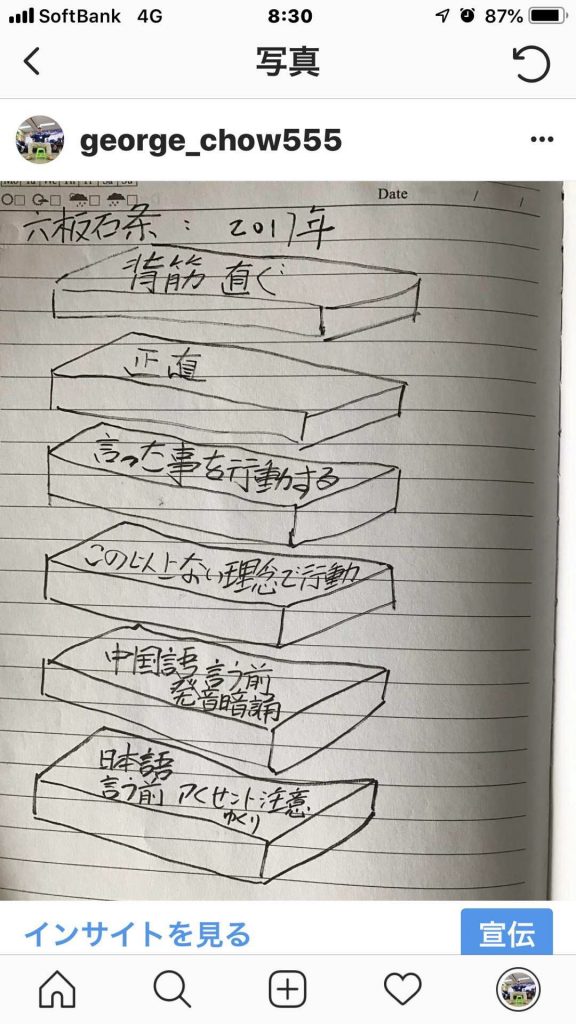 SoftBank 4G 8:30 87%
写真
george_chow555
Mo Tu We Th Fr Sa Su
Date / /
六板石条: 2017年
背筋 直ぐ
正直
言った事を行動する
この以上ない理念で行動
中国語 言う前
発音暗誦
日本語
言う前 アクセント注意
ゆくり
インサイトを見る
宣伝